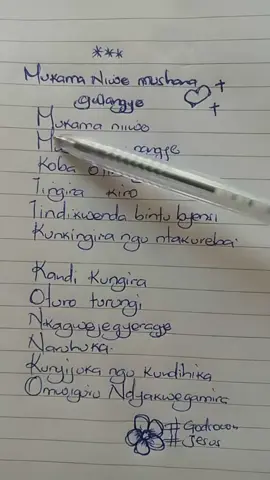 ***
Mukama Niwe mushana
gwangye
Mukama niiwe
Mu rangye
Koba
Tingira kiro
Tindikwenda bintu byensi
Kunkingira ngu ntakureba
Kandi kungira
Oturo turungi
Nkagwejegyerage
Naruhuka.
Kunyijuka ngu kundihika
Omwiguru Ndyakwegamira
#Godrocom
#Jesus